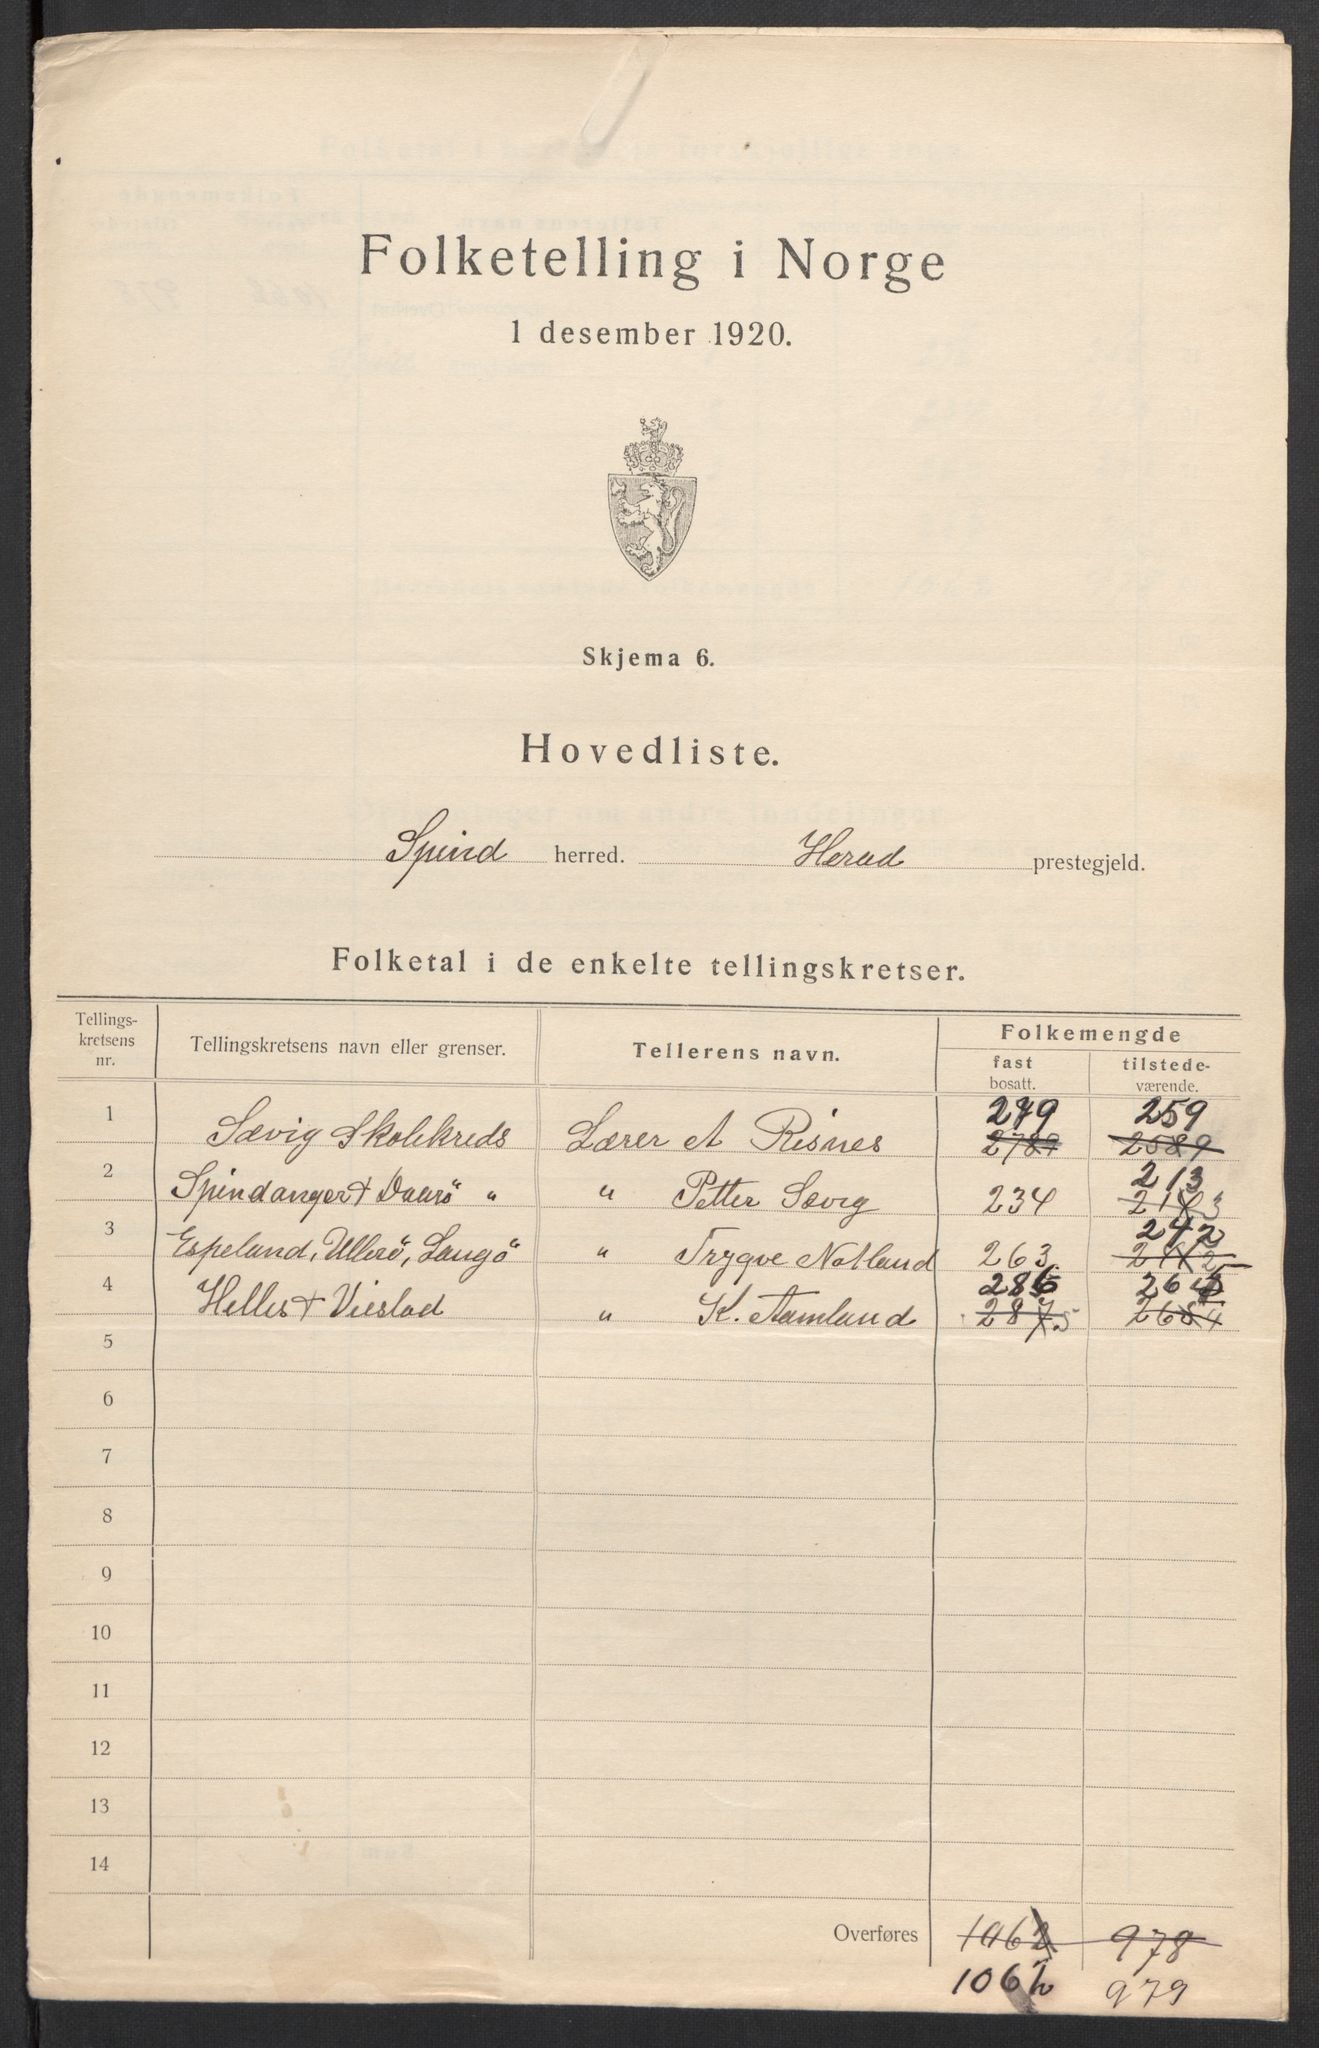 Folketelling i Norge
1 desember 1920.
Skjema 6.
Hovedliste.
Spind herred. Herad prestegjeld.
Folketal i de enkelte tellingskretser.
Tellings-
kretsens
nr.
Tellingskretsens navn eller grenser.
Tellerens navn.
Folkemengde
fast
bosatt.
tilstede-
værende.
279 259
1 Sævig Skolekreds Lærer A Risnes
213
2 Spindanger + Daarø " " Petter Sævig 234
242
3 Espeland, Ullerø, Langø " Trygve Notland 263
286 265
4 Helles + Vieslad " K. Aamland
5
6
7
8
9
10
11
12
13
14
Overføres 1062 978
1062 979